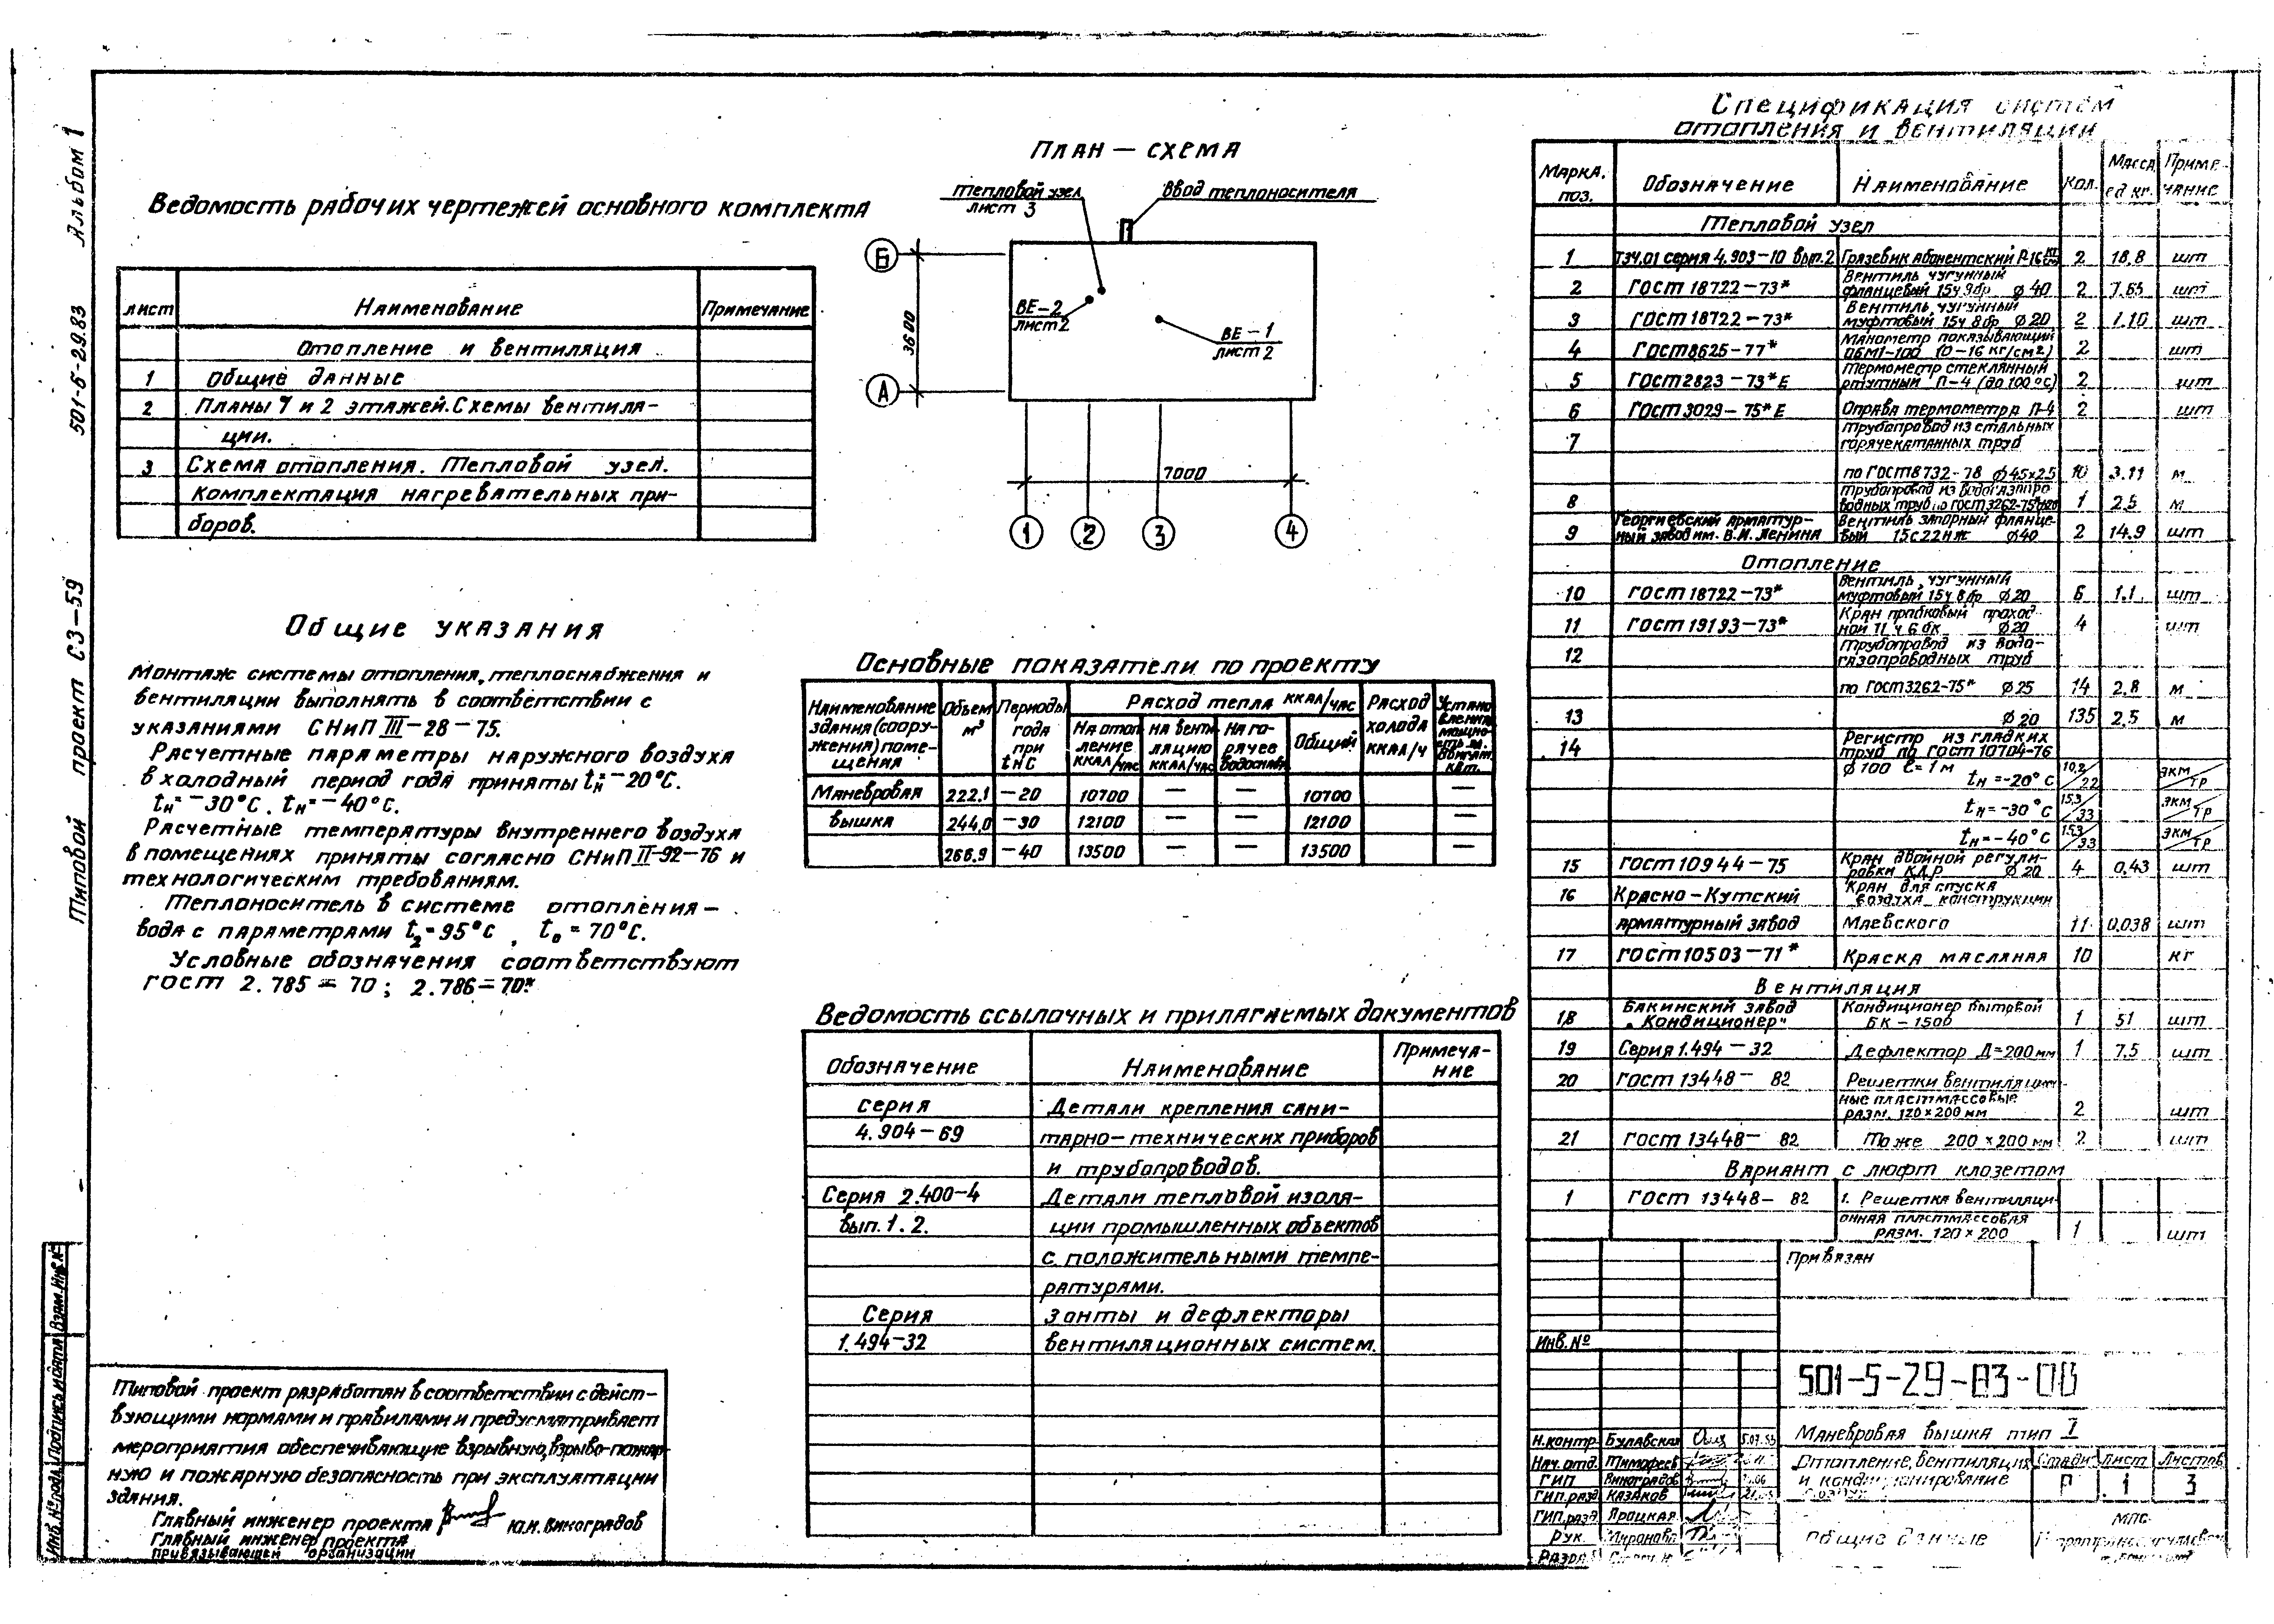 Альбом 1
501-5-29.83
Типовой проект СЗ-59
Ведомость рабочих чертежей основного комплекта
лист Наименование Примечание
Отопление и вентиляция
1 Общие данные
2 Планы 1 и 2 этажей. Схемы вентиля-
ции.
3 Схема отопления. Тепловой узел.
Комплектация нагревательных при-
боров.
Общие указания
Монтаж системы отопления, теплоснабжения и
вентиляции выполнять в соответствии с
указаниями СНиП III-28-75.
Расчетные параметры наружного воздуха
в холодный период года приняты tн=-20°С.
tн=-30°С. tн=-40°С.
Расчетные температуры внутреннего воздуха
в помещениях приняты согласно СНиП II-92-76 и
технологическим требованиям.
Теплоноситель в системе отопления-
вода с параметрами t2=95°С, t0=70°С.
Условные обозначения соответствуют
ГОСТ 2.785-70; 2.786-70*
Типовой проект разработан в соответствии с дейст-
вующими нормами и правилами и предусматривает
мероприятия обеспечивающие взрывную, взрыво-пожар-
ную и пожарную безопасность при эксплуатации
здания.
Главный инженер проекта Ю.Н. Виноградов
Главный инженер проекта
привязывающей организации
Инв. № подл. Подпись и дата Взам. инв. №
План-схема
Тепловой узел
лист 3
Ввод теплоносителя
Б
А
3600
ВЕ-2
лист 2
ВЕ-1
лист 2
7000
1 2 3 4
Основные показатели по проекту
Наименование здания (соору-жения) поме-щения Объем м³ Периоды года при tн С Расход тепла ккал/час Расход холода ккал/ч Устано вленная мощно-сть эл. двигат. квт.
На отоп ление ккал/час на венти ляцию ккал/час На го-рячее водоснаб Общий
Маневровая 222.1 -20 10700 — — 10700 —
вышка 244,0 -30 12100 — — 12100 —
266.9 -40 13500 — — 13500 —
Ведомость ссылочных и прилагаемых документов
Обозначение Наименование Примеча-ние
Серия Детали крепления сани-
4.904-69 тарно-технических приборов
и трубопроводов.
Серия 2.400-4 Детали тепловой изоля-
вып. 1.2. ции промышленных объектов
с положительными темпе-
ратурами.
Серия Зонты и дефлекторы
1.494-32 вентиляционных систем.
Спецификация систем
отопления и вентиляции
Марка. поз. Обозначение Наименование Кол. Масса ед кг. Приме-чание
Тепловой узел
1 ТЭЧ.01 серия 4.903-10 вып.2 Грязевик абонентский Р-16 2 18,8 шт
2 ГОСТ 18722-73* Вентиль чугунный фланцевый 15ч9бр ∅40 2 7.65 шт
3 ГОСТ 18722-73* Вентиль, чугунный муфтовый 15ч8бр ∅20 2 1.10 шт
4 ГОСТ 8625-77* Манометр показывающий ОБМ1-100 (0-16 кг/см2) 2 шт
5 ГОСТ 2823-73*Е Термометр стеклянный ртутный П-4 (до 100°С) 2 шт
6 ГОСТ 3029-75*Е Оправа термометра П-4 2 шт
7 Трубопровод из стальных горячекатанных труб
по ГОСТ 8732-78 ∅45х2.5 10 3.11 м
8 Трубопровод из водогазопро водных труб по ГОСТ 3262-75* ∅20 1 2.5 м
9 Георгиевский арматур-ный завод им. В.И. Ленина Вентиль запорный фланце-вый 15с22нж ∅40 2 14.9 шт
Отопление
10 ГОСТ 18722-73* Вентиль, чугунный муфтовый 15ч8бр ∅20 6 1.1 шт
11 ГОСТ 19193-73* Кран пробковый проход-ной 11ч6бк ∅20 4 шт
12 Трубопровод из водо-газопроводных труб
по ГОСТ 3262-75* ∅25 14 2.8 м
13 ∅20 135 2,5 м
14 Регистр из гладких труб по ГОСТ 10704-76
∅100 ℓ=1м tн=-20°С 10,2/22 экм/тр
tн=-30°С 15,3/33 экм/тр
tн=-40°С 15,3/33 экм/тр
15 ГОСТ 10944-75 Кран двойной регули-ровки КДР ∅20 4 0,43 шт
16 Красно-Кутский Кран для спуска воздуха конструкции
арматурный завод Маевского 11 0,038 шт
17 ГОСТ 10503-71* Краска масляная 10 кг
Вентиляция
18 Бакинский завод „Кондиционер" Кондиционер бытовой БК-1500 1 51 шт
19 Серия 1.494-32 Дефлектор Д=200мм 1 7.5 шт
20 ГОСТ 13448-82 Решетки вентиляцион-
ные пластмассовые разм. 120×200 мм 2 шт
21 ГОСТ 13448-82 То же 200×200 мм 2 шт
Вариант с люфт клозетом
1 ГОСТ 13448-82 1. Решетка вентиляци-
онная пластмассовая разм. 120×200 1 шт
Привязан
Инв. №
501-5-29-83-ОВ
Маневровая вышка тип I
Н.контр. Булавская 5.07.83
Нач. отд. Тимофеев
ГИП Виноградов
ГИП.разд. Казаков
ГИП.разд. Яроцкая
Рук. Миронова
Разраб
Отопление, вентиляция и кондиционирование воздуха
Стадия Лист Листов
Р 1 3
Общие данные
МПС